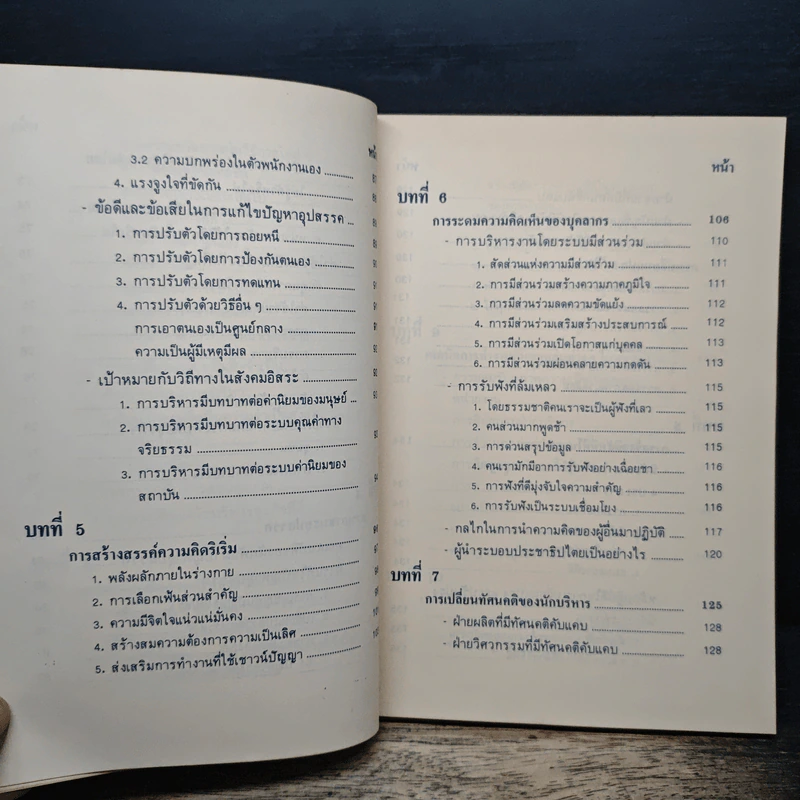 3.2 ความบกพร่องในตัวพนักงานเอง
4. แรงจูงใจที่ขัดกัน
- ข้อดีและข้อเสียในการแก้ไขปัญหาอุปสรรค
1. การปรับตัวโดยการถอยหนี
2. การปรับตัวโดยการป้องกันตนเอง
3. การปรับตัวโดยการทดแทน
4. การปรับตัวด้วยวิธีอื่น ๆ
การเอาตนเองเป็นศูนย์กลาง
ความเป็นผู้มีเหตุมีผล
- เป้าหมายกับวิถีทางในสังคมอิสระ
1. การบริหารมีบทบาทต่อค่านิยมของมนุษย์
2. การบริหารมีบทบาทต่อระบบคุณค่าทาง
จริยธรรม
3. การบริหารมีบทบาทต่อระบบค่านิยมของ
สถาบัน
บทที่ 5
การสร้างสรรค์ความคิดริเริ่ม
1. พลังผลักภายในร่างกาย
2. การเลือกเฟ้นส่วนสำคัญ
3. ความมีจิตใจแน่วแน่มั่นคง
4. สร้างสมความต้องการความเป็นเลิศ
5. ส่งเสริมการทำงานที่ใช้เชาวน์ปัญญา
หน้า
บทที่ 6
การระดมความคิดเห็นของบุคลากร 106
- การบริหารงานโดยระบบมีส่วนร่วม 110
1. สัดส่วนแห่งความมีส่วนร่วม 111
2. การมีส่วนร่วมสร้างความภาคภูมิใจ 111
3. การมีส่วนร่วมลดความขัดแย้ง 112
4. การมีส่วนร่วมเสริมสร้างประสบการณ์ 112
5. การมีส่วนร่วมเปิดโอกาสแก่บุคคล 113
6. การมีส่วนร่วมผ่อนคลายความกดดัน 113
- การรับฟังที่ล้มเหลว 115
1. โดยธรรมชาติคนเราจะเป็นผู้ฟังที่เลว 115
2. คนส่วนมากพูดช้า 115
3. การด่วนสรุปข้อมูล 115
4. คนเรามักมีอาการรับฟังอย่างเฉื่อยชา 116
5. การฟังที่ดีมุ่งจับใจความสำคัญ 116
6. การรับฟังเป็นระบบเชื่อมโยง 116
- กลไกในการนำความคิดของผู้อื่นมาปฏิบัติ 117
- ผู้นำระบอบประชาธิปไตยเป็นอย่างไร 120
บทที่ 7
การเปลี่ยนทัศนคติของนักบริหาร 125
- ฝ่ายผลิตที่มีทัศนคติคับแคบ 128
- ฝ่ายวิศวกรรมที่มีทัศนคติคับแคบ 128